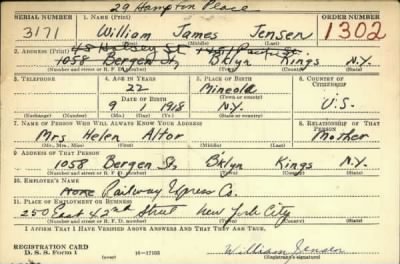 29 Hampton Place
SERIAL NUMBER 1. NAME (Print) ORDER NUMBER
3171 William James Jensen 1302
(First) (Middle) (Last)
2. ADDRESS (Print)
1058 Bergen St, Bklyn Kings N.Y.
(Number and street or R. F. D. number) (Town) (County) (State)
3. TELEPHONE 4. AGE IN YEARS 5. PLACE OF BIRTH 6. COUNTRY OF CITIZENSHIP
22 Mineola
DATE OF BIRTH (Town or county)
9 1 1918 N.Y. U.S.
(Exchange) (Number) (Mo.) (Day) (Yr.) (State or country)
7. NAME OF PERSON WHO WILL ALWAYS KNOW YOUR ADDRESS 8. RELATIONSHIP OF THAT PERSON
Mrs Helen Altor Mother
(Mr., Mrs., Miss) (First) (Middle) (Last)
9. ADDRESS OF THAT PERSON
1058 Bergen St, Bklyn Kings N.Y.
(Number and street or R. F. D. number) (Town) (County) (State)
10. EMPLOYER'S NAME
None Railway Express Co.
11. PLACE OF EMPLOYMENT OR BUSINESS
250 East 42nd Street New York City
(Number and street or R. F. D. number) (Town) (County) (State)
I AFFIRM THAT I HAVE VERIFIED ABOVE ANSWERS AND THAT THEY ARE TRUE.
REGISTRATION CARD
D. S. S. Form 1 16-17105 William Jensen
(Registrant's signature)